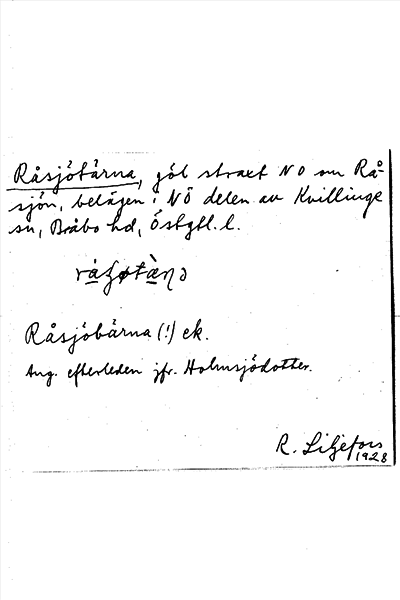 Råsjötärna, göl straxt NO om Rå-
sjön, belägen i NÖ delen av Kvillinge
sn, Bråbo hd, Östgtl. l.
Råsjöbärna (!) ek.
Ang. efterleden jfr. Holmsjödotter.
R. Liljefors
1928